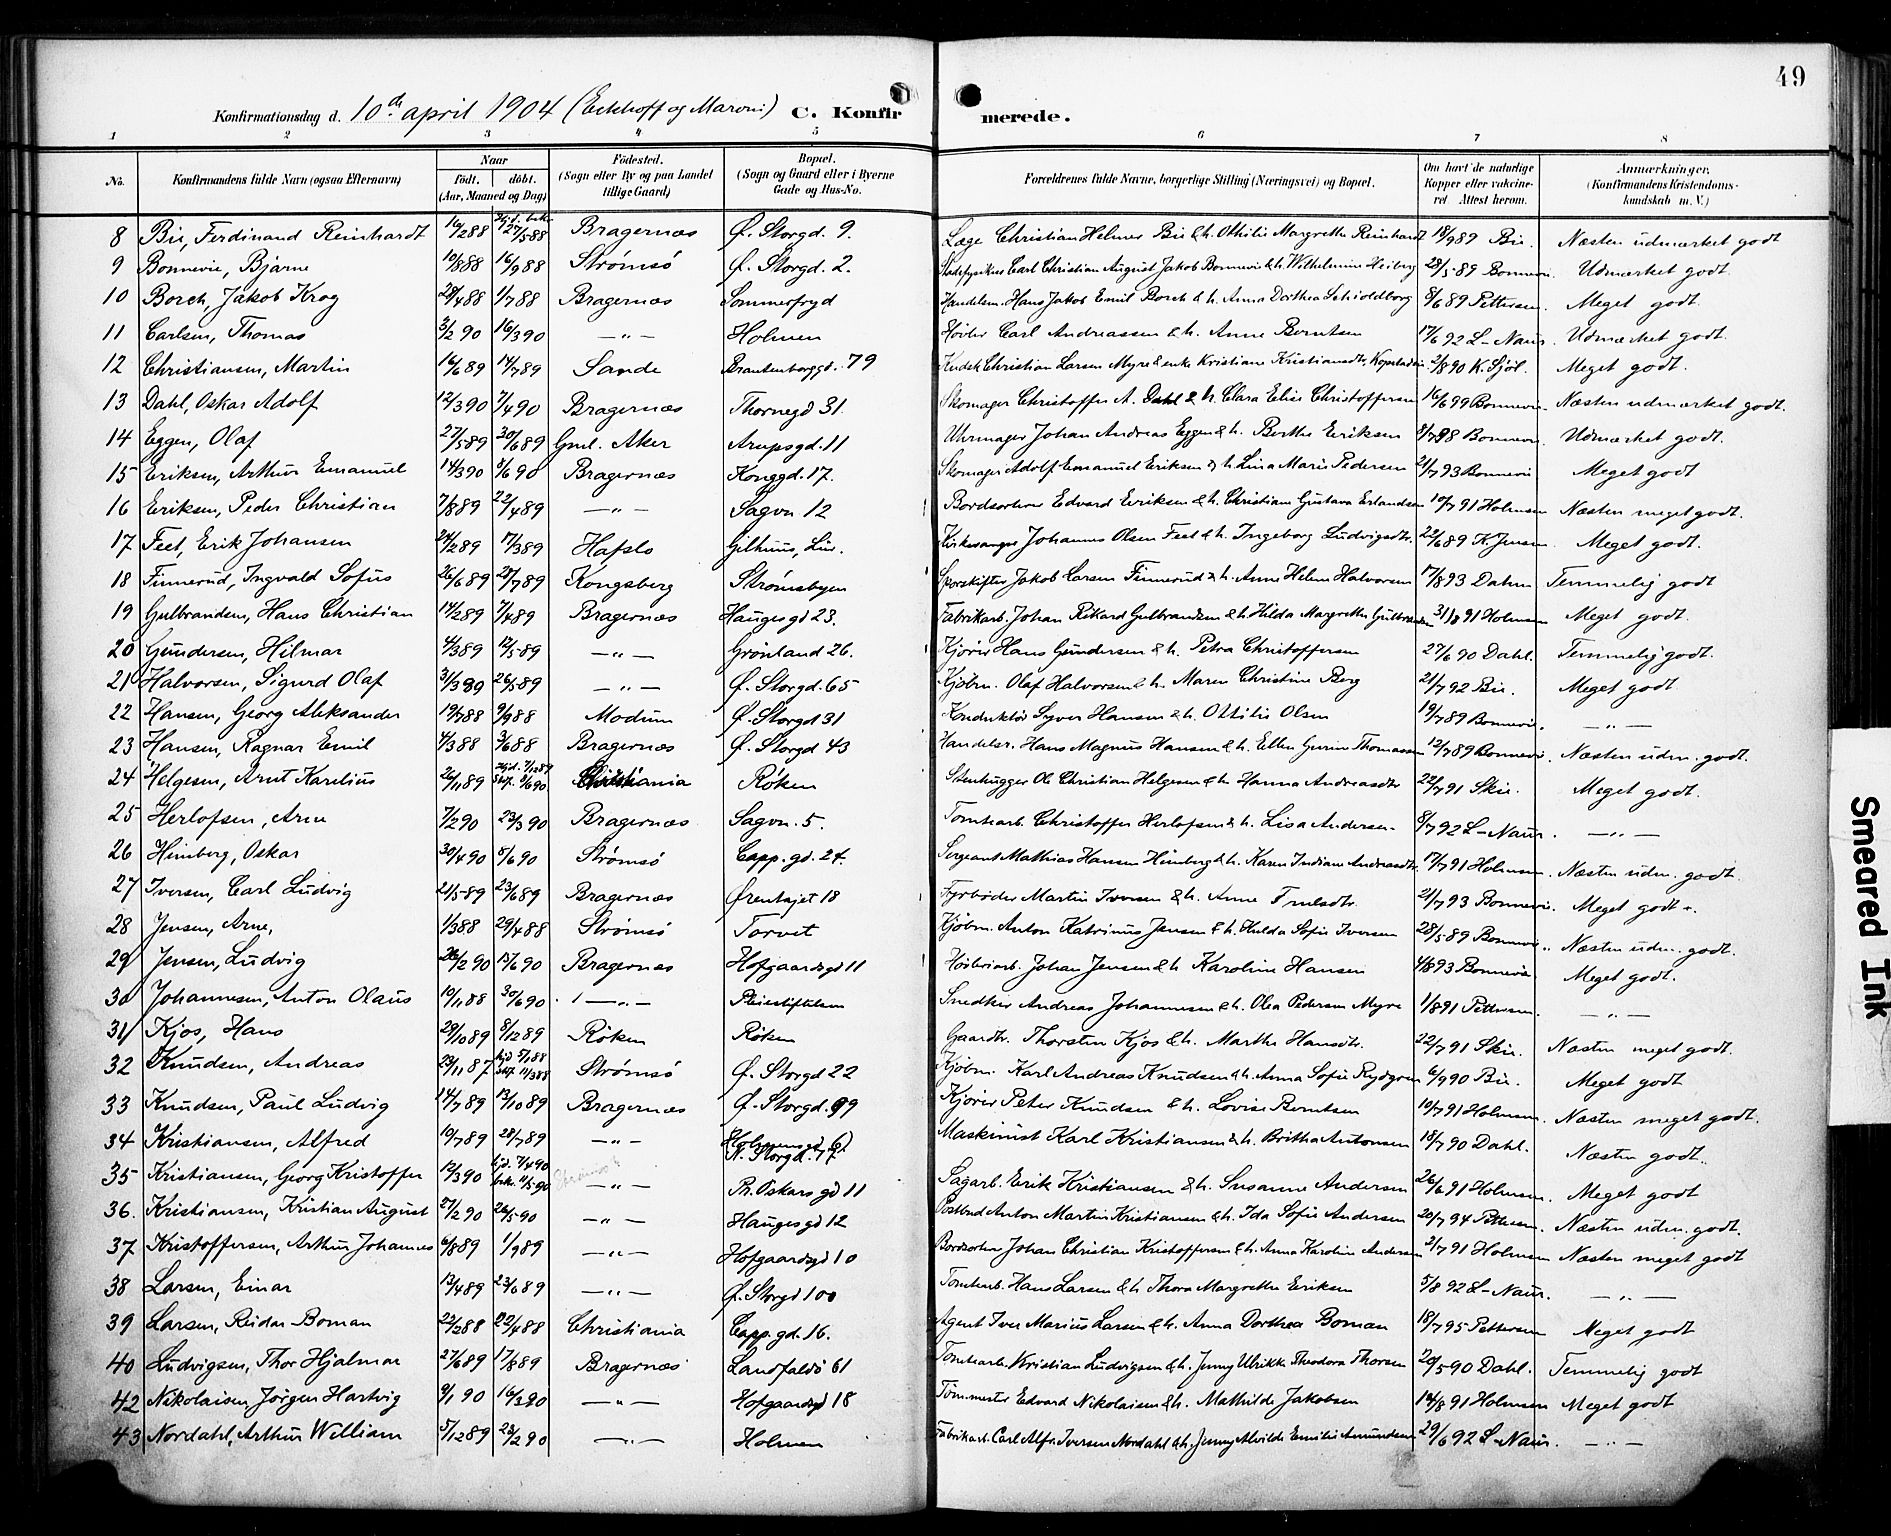 49
Konfirmationsdag d. 10de april 1904 (Eckhoff og Maroni) C. Konfirmerede.
1 2 3 4 5 6 7 8
No. Konfirmandens fulde Navn (ogsaa Efternavn) Naar födt. döbt. (Aar, Maaned og Dag) Födested. (Sogn eller By og paa Landet tillige Gaard) Bopæl. (Sogn og Gaard eller i Byerne Gade og Hus-No. Forældrenes fulde Navne, borgerlige Stilling (Næringsvei) og Bopæl. Om havt de naturlige Kopper eller vaccineret. Attest herom. Anmærkninger. (Konfirmandens Kristendomskundskab m. V.)
8 Bie, Ferdinand Reinhardt 16/2 88 27/5 88 Bragernæs Ø. Storgd. 9. Læge Christian Helmer Bie & h. Ottilie Margrethe Reinhardt 18/9 89 Bie. Næsten udmærket godt
9 Bonnevie, Bjarne 10/8 88 16/9 88 Strømsö Ø. Storgd. 2. Stadsfysikus Carl Christian August Jakob Bonnevie & h. Wilhelmine Heiberg 28/5 89 Bonnevie. Udmærket godt
10 Borch, Jakob Krog 28/4 88 1/7 88 Bragernæs Sommerfryd Handelsm. Hans Jakob Emil Borch & h. Anna Dorthea Schioldborg 8/6 89 Pettersen. Meget godt
11 Carlsen, Thomas 3/2 90 16/3 90 —"— Holmen Høvler Carl Andreassen & h. Anne Berntsen 17/6 92 L-Naur. Udmærket godt.
12 Christiansen, Martin 16/6 89 14/7 89 Sande Brantenborggd. 79 Kudsk Christian Larsen Myre & enke Kristiane Kristiansdtr. 2/8 90 K. Sjöl. Meget godt.
13 Dahl, Oskar Adolf 12/3 90 7/4 90 Bragernæs Thornegd 31. Skomager Christoffer A. Dahl & h. Clara Elise Christoffersen 16/6 99 Bonnevie. Næsten udmærket godt.
14 Eggen, Olaf 27/5 89 30/6 89 Gml. Aker Arupsgd. 11 Uhrmager Johan Andreas Eggen & h. Berthe Eriksen 8/7 98 Bonnevie. Udmærket godt.
15 Eriksen, Arthur Emanuel 14/3 90 8/6 90 Bragernæs Konggd. 17. Skomager Adolf Emanuel Eriksen & h. Lina Marie Pedersen 21/7 93 Bonnevie Meget godt
16 Eriksen, Peder Christian 7/8 89 22/4 89 —"— Sagvn 12 Bordsorterer Edvard Eriksen & h. Christiane Gustava Erlandsen 10/7 91 Holmsen Næsten meget godt.
17 Feet, Erik Johansen 24/2 89 17/3 89 Hafslo Gilhuus, Lier. Kirkesanger Johannes Olsen Feet & h. Ingeborg Ludvigsdtr. 22/6 89 K Jensen. Meget godt.
18 Finnerud, Ingvald Sofus 26/6 89 27/7 89 Kongsberg Strömsbyen Sporskifter Jakob Larsen Finnerud & h. Anne Helene Halvorsen 17/8 93 Dahm Temmelig godt
19 Gulbrandsen, Hans Christian 14/2 89 7/4 89 Bragernæs Haugesgd 23. Fabrikarb. Johan Rikard Gulbrandsen & h. Hilda Margrethe Gulbrandsen 31/8 91 Holmsen Meget godt.
20 Gundersen, Hilmar 4/3 89 12/5 89 —"— Grönland 26. Kjörer Hans Gundersen & h. Petra Christoffersen 27/6 90 Dahl. Temmelig godt.
21 Halvorsen, Sigurd Olaf 31/3 89 26/5 89 —"— Ø. Storgd. 65 Kjöbm. Olaf Halvorsen & h. Maren Christine Berg 21/7 92 Bie. Meget godt
22 Hansen, Georg Aleksander 19/7 88 9/9 88 Modum Ø. Storgd 31 Konduktör Syver Hansen & h. Ottilie Olsen 19/7 89 Bonnevie. —"—
23 Hansen, Ragnar Emil 4/3 88 3/6 88 Bragernæs Ø. Storgd 43 Handelsr. Hans Magnus Hansen & h. Ellen Gurine Thomassen 12/7 89 Bonnevie. Næsten udm. godt.
24 Helgesen, Arnt Karelius 26/11 89 hjd. 7/12 89 stf. 8/6 90 Christiania Røken Stenhugger Ole Christian Helgesen & h. Hanna Andreasdtr 22/7 91 Skie. Meget godt.
25 Herlofsen, Arne 7/2 90 23/3 90 Bragernæs Sagvn. 5. Tomtearb. Christoffer Herlofsen & h. Lisa Andersen. 8/7 92 L-Naur. —"—
26 Himberg, Oskar 30/4 90 8/6 90 Strømsö Capp. gd. 24. Sergeant Mathias Hansen Himberg & h. Karen Indiane Andreasdtr. 17/7 91 Holmsen. Næsten udm. godt.
27 Iversen, Carl Ludvig 21/5 89 23/6 89 Bragernæs Ørentajet 18 Fyrböder Martin Iversen & h. Anne Truelsdtr. 21/7 93 Bonnevie. Meget godt.
28 Jensen, Arne, 1/3 88 29/4 88 Strömsö Torvet Kjöbm. Anton Katrinus Jensen & h. Hulda Sofie Iversen 28/5 89 Bonnevie. Næsten udm. godt.
29 Jensen, Ludvig 26/2 90 15/6 90 Bragernæs Hofgaardsgd 11 Høvleriarb. Johan Jensen & h. Karoline Hansen 4/8 93 Bonnevie Meget godt.
30 Johannesen, Anton Olaus 10/11 88 30/6 90 —"— Pleiestiftelsen Snedker Andreas Johannesen & h. Olea Pedersen Myre 1/8 91 Pettersen. —"—
31 Kjos, Hans 29/10 89 8/12 89 Røken Røken Gaardbr. Thorsten Kjos & h. Marthe Hansdtr. 22/7 91 Skie. Næsten meget godt.
32 Knudsen, Andreas 23/11 87 hjd 5/1 88 stf. 11/3 88 Strømsö Ø. Storgd 22 Kjöbm. Karl Andreas Knudsen & h. Anna Sofie Rydgren 6/9 90 Bie. Meget godt
33 Knudsen, Paul Ludvig 14/7 89 13/10 89 Bragernæs Ø. Storgd. 99 Kjörer Peter Knudsen & h. Lovise Berntsen 10/7 91 Holmsen. Næsten meget godt.
34 Kristiansen, Alfred 10/7 89 28/7 89 —"— Holmensgd 6) N. Storgd. 17. Maskinist Karl Kristiansen & h. Britha Antonsen 18/7 90 Dahl. Næsten godt.
35 Kristiansen, Georg Kristoffer 12/3 90 hjd. 7/4 90 bek. 11/5 90 —"— Th. Oskars gd 11 Sagarb. Erik Kristiansen & h. Susanne Andersen 26/6 91 Holmsen. Meget godt
36. Kristiansen, Kristian August 27/2 90 26/5 90 —"— Haugesgd 12 Postbud Anton Martin Kristiansen & h. Ida Sofie Andersen 20/7 94 Pettersen. Næsten udm. godt.
37 Kristoffersen, Arthur Johannes 6/8 89 1/9 89 —"— Hofgaardsgd 10 Bordsorterer Johan Christian Kristoffersen & h. Anna Karoline Andersen 2/7 91 Holmsen Næsten meget godt
38 Larsen, Einar 13/4 89 23/6 89 —"— Ø. Storgd 100 Tomtearb. Hans Larsen & h. Thora Margrethe Eriksen 5/8 92 L-Naur. —"—
39 Larsen, Reidar Boman 22/2 88 22/4 88 Christiania Capp. gd. 16. Agent Iver Marius Larsen & h. Anna Dorthea Boman 18/7 95 Pettersen Meget godt
40 Ludvigsen, Thor Hjalmar 27/6 89 17/8 89 Bragernæs Landfaldö 61 Tomtearb. Kristian Ludvigsen & h. Jenny Ulrikke Theodora Thorsen 20/5 90 Dahl. Temmelig godt
42 Nikolaisen, Jörgen Hartvig 9/1 90 16/3 90 —"— Hofgaardsgd 18 Tömmester Edvard Nikolaisen & h. Mathilde Jakobsen 14/8 91 Holmsen Meget godt
43 Nordahl, Arthur William 5/12 89 23/2 90 —"— Holmen Fabrikarb. Carl Alfr. Iversen Nordahl & h. Jenny Alvilde Emilie Amundsen 29/6 92 L-Naur. —"—
Smeared Ink